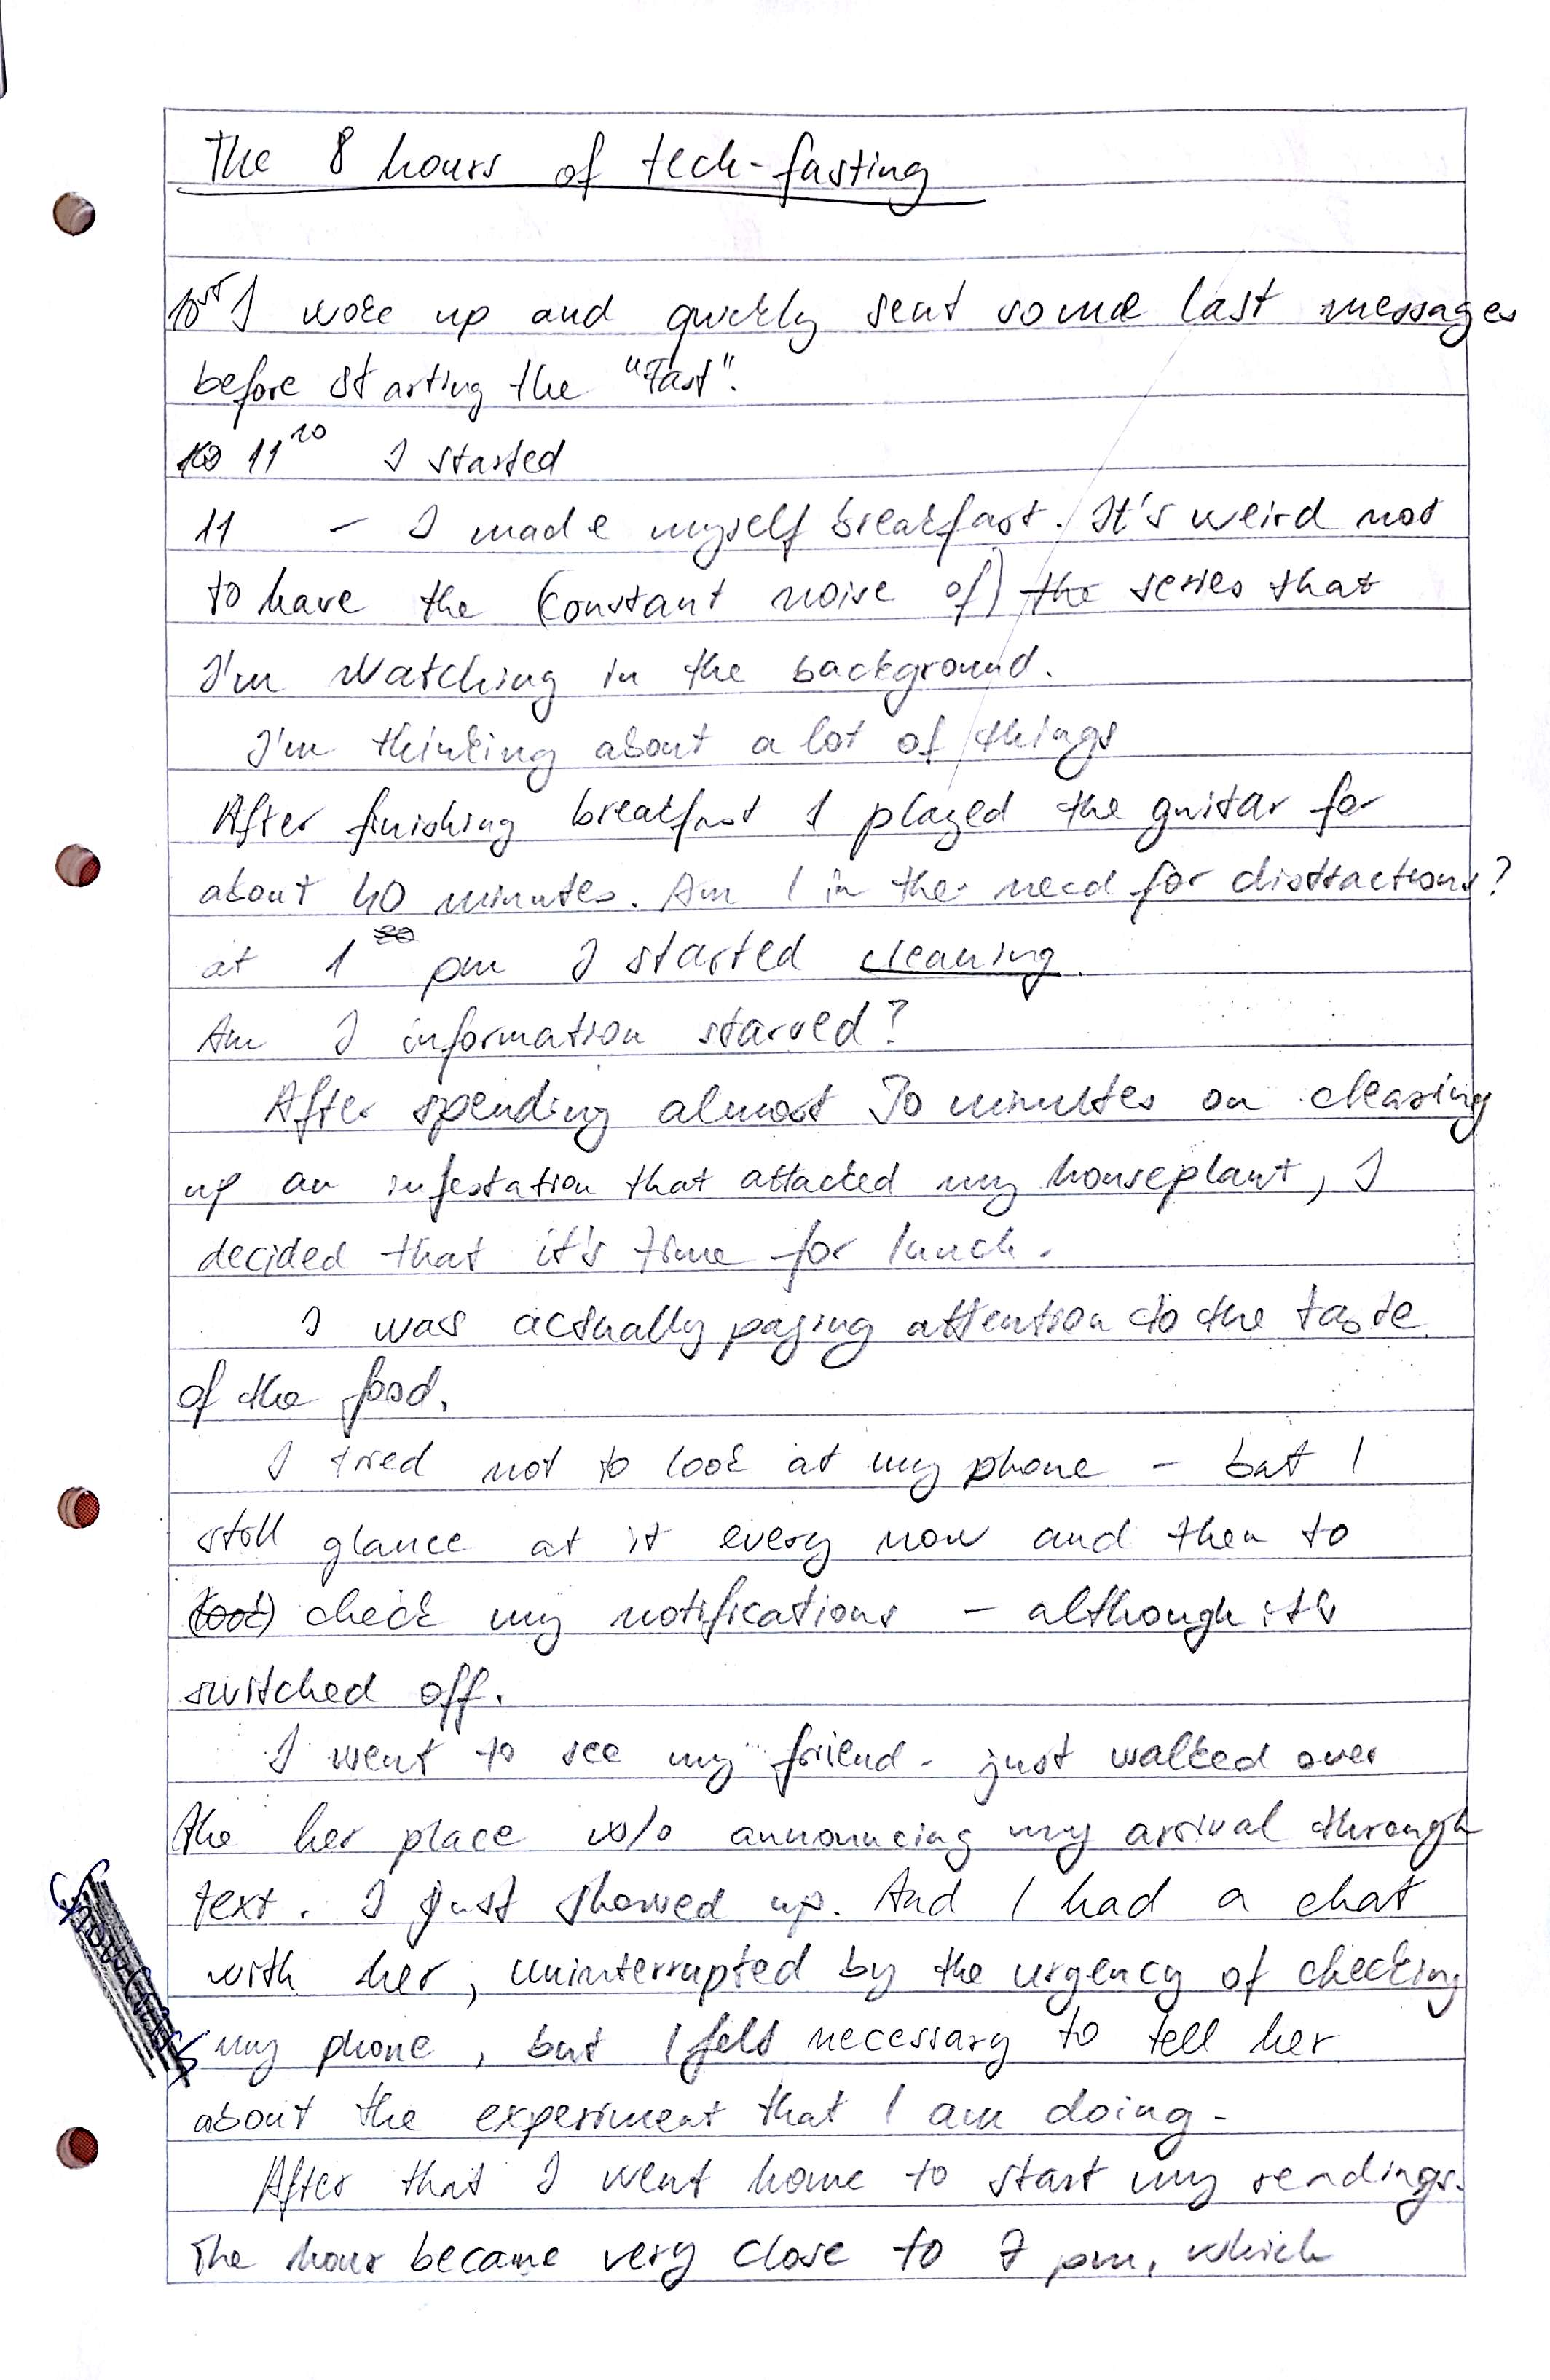 The 8 hours of tech-fasting
I woke up and quickly sent some last messages
before starting the "Fast".
11 10 I started
11 - I made myself breakfast. It's weird not
to have the (constant noise of) the series that
I'm watching in the background.
I'm thinking about a lot of things
After finishing breakfast I played the guitar for
about 40 minutes. Am I in the need for distractions?
at 1 pm I started cleaning.
Am I information starved?
After spending almost 30 minutes on clearing
up an infestation that attacked my houseplant, I
decided that it's time for lunch.
I was actually paying attention to the taste
of the food.
I tried not to look at my phone - but I
still glance at it every now and then to
(look) check my notifications - although it's
switched off.
I went to see my friend - just walked over
the her place w/o announcing my arrival through
text. I just showed up. And I had a chat
with her, uninterrupted by the urgency of checking
my phone, but I felt necessary to tell her
about the experiment that I am doing.
After that I went home to start my readings.
The hour became very close to 7 pm, which